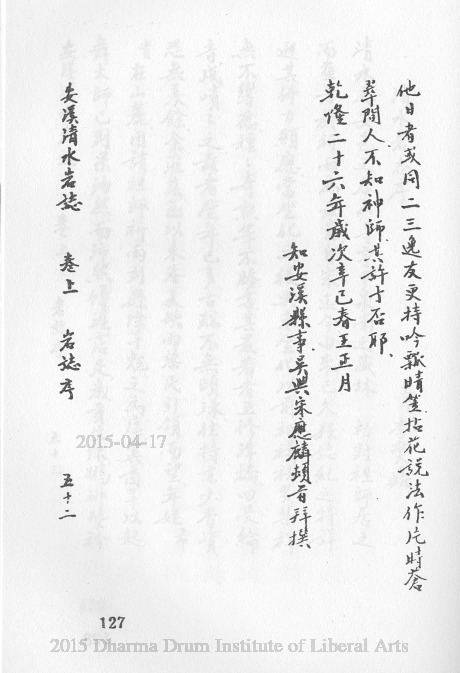 他日者或同二三逸友更持吟瓢晴笠拈花說法作片時蒼
葊間人不知神師其許才否耶
乾隆二十六年歲次辛巳春王正月
知安溪縣事吳興宋應麟頓首拜撰
安溪清水岩誌 卷上 岩誌序 五十二
2015-04-17
127
2015 Dharma Drum Institute of Liberal Arts